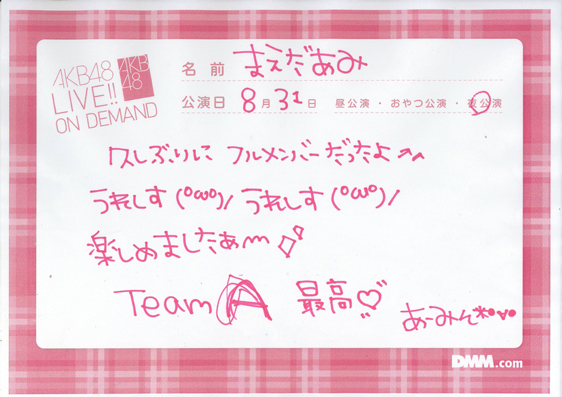 AKB48
LIVE!!
ON DEMAND
AKB
48
名前 まえだあみ
公演日 8月31日 昼公演・おやつ公演・夜公演
久しぶりに フルメンバーだったよ^^
うれしす(°ω°)/ うれしす(°ω°)/
楽しめましたぁm
Team A 最高♡
あーみん*•ᴗ•
DMM.com